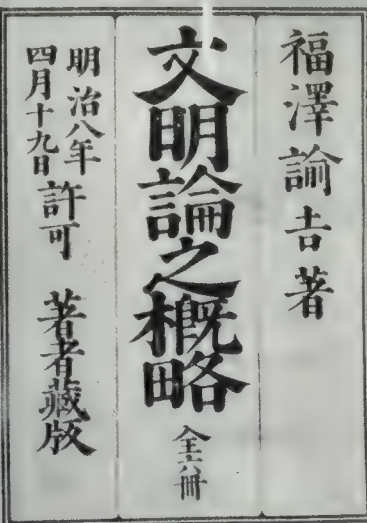 福澤諭吉著
文明論之概略 全六冊
明治八年四月十九日許可 著者藏版